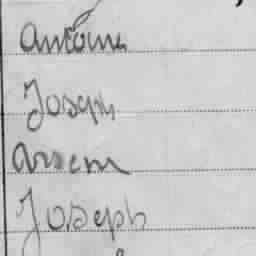 Antoine
Joseph
Arsen
Joseph